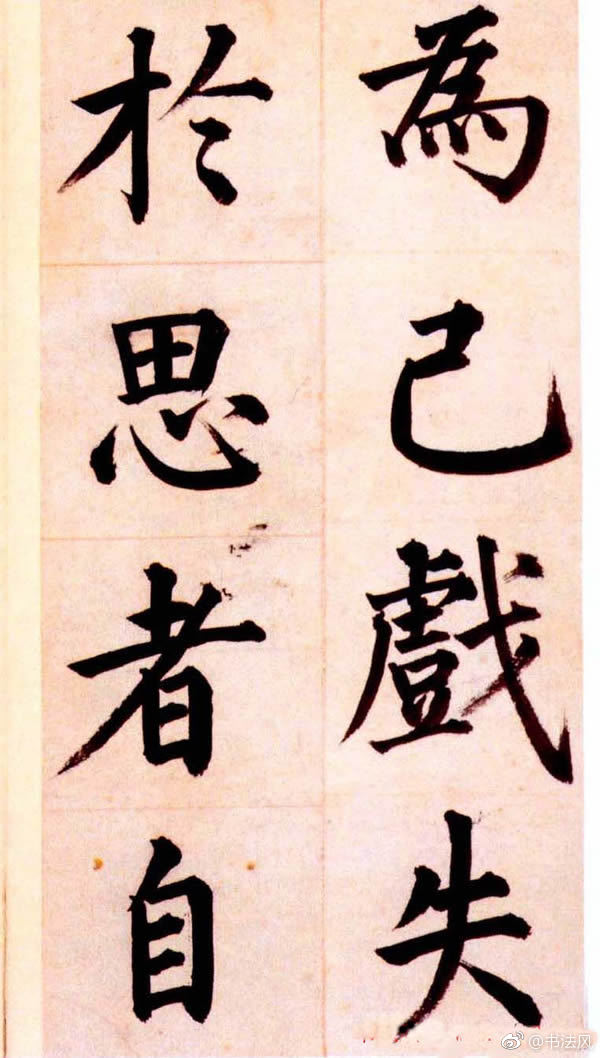 為己戲失
於思者自
@书法风